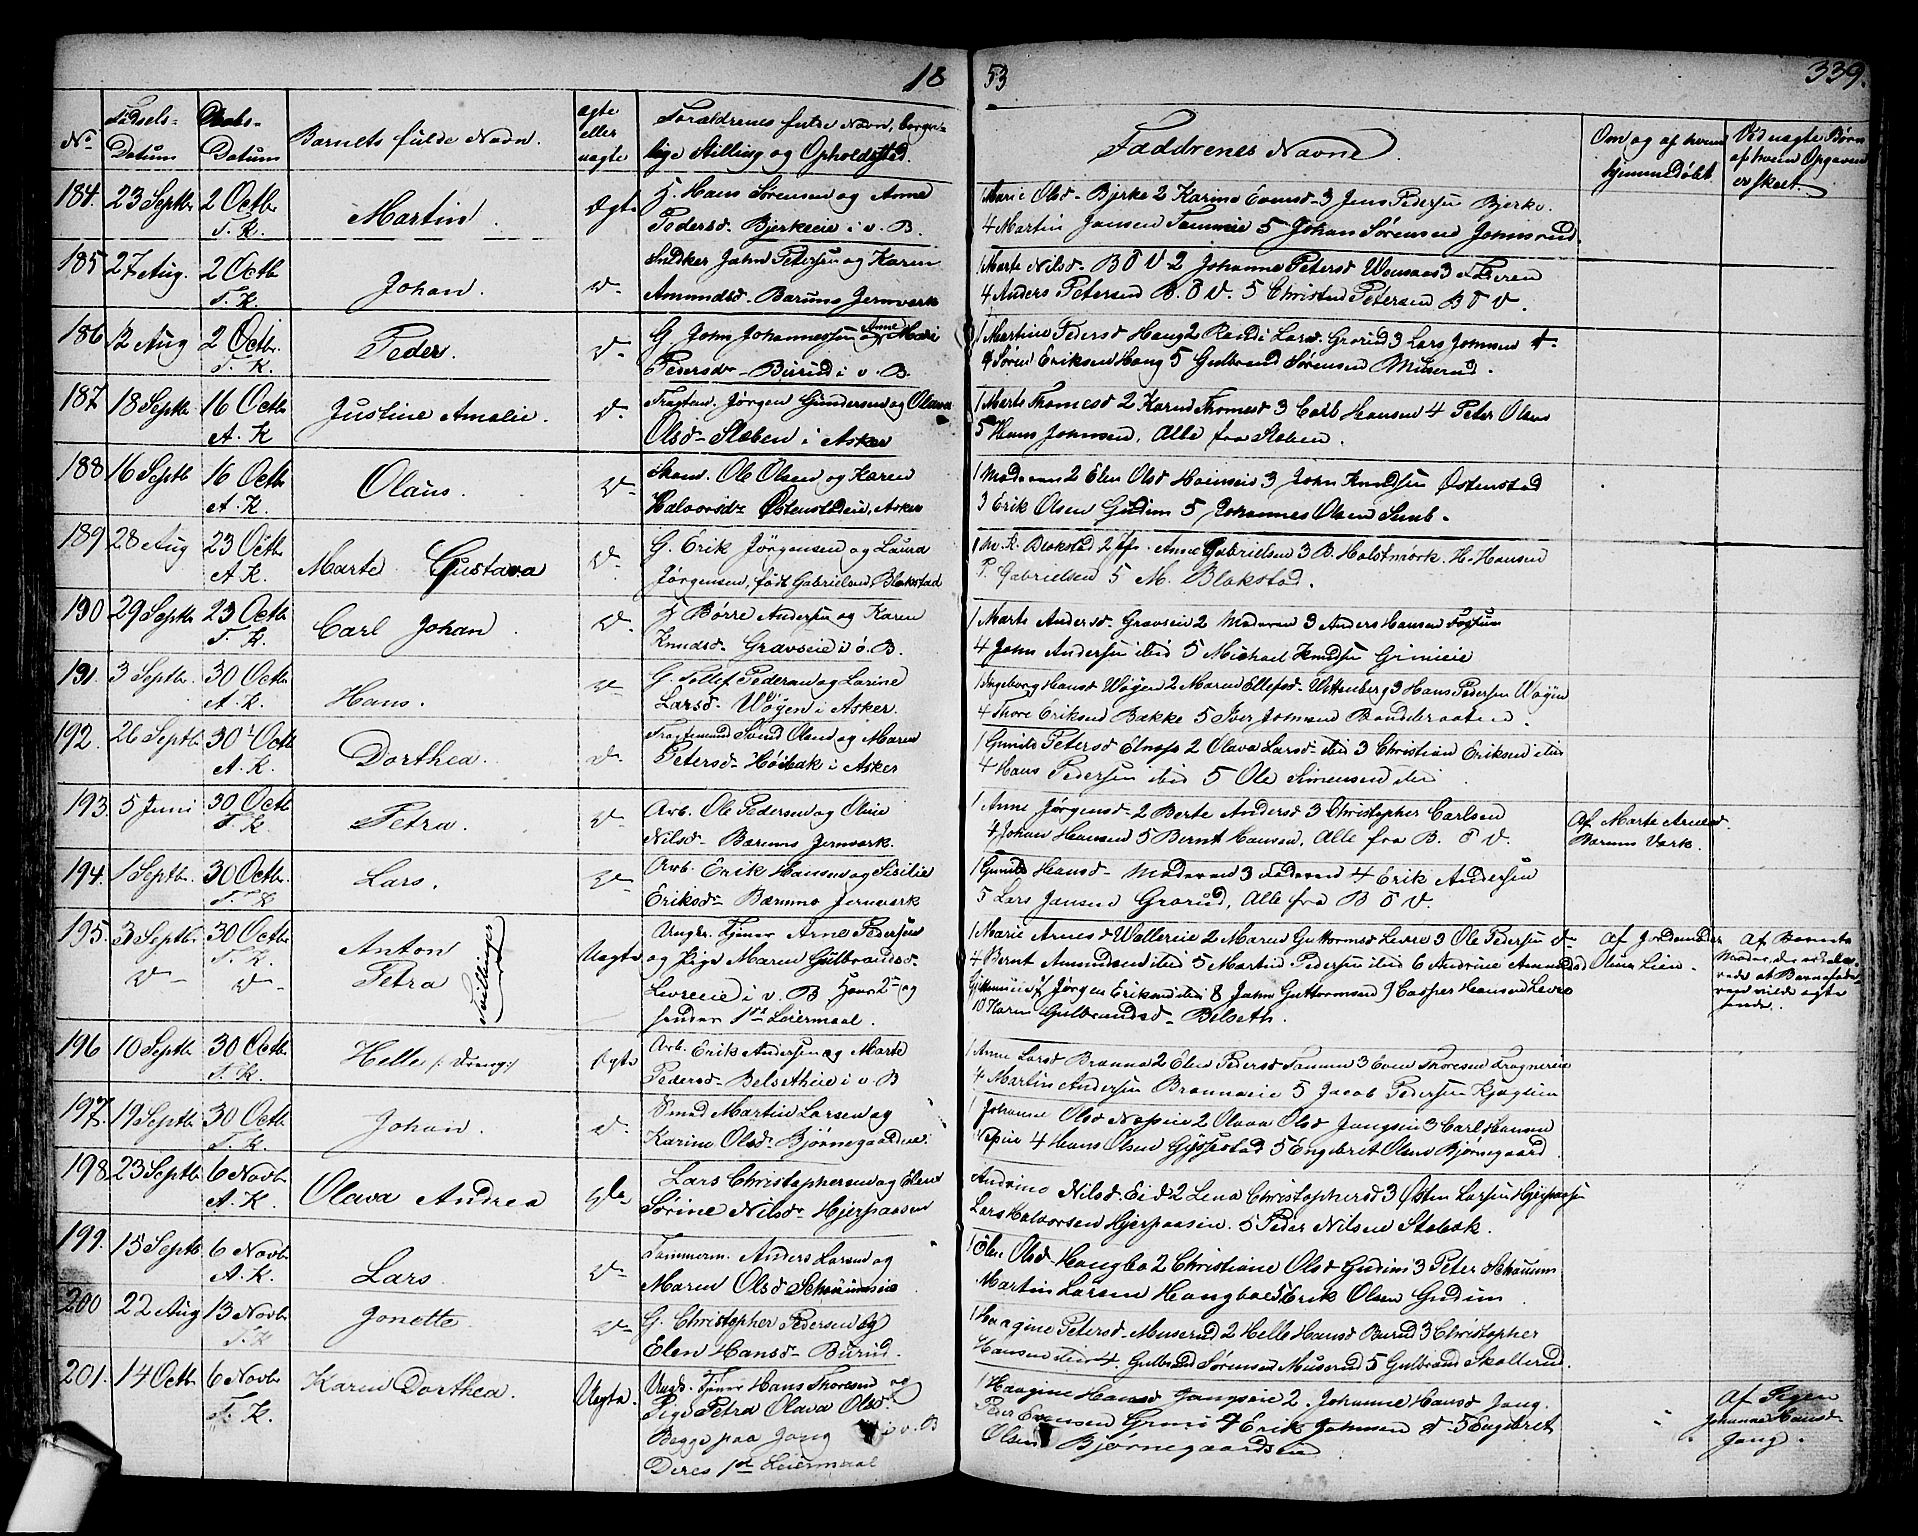 18
53
339.
No
Fødsels-
Datum
Daabs-
Datum
Barnets fulde Navn.
ægte
eller
uægte
Forældrenes fulde Navn, borger-
lige Stilling og Opholdssted.
Faddrenes Navne.
Om og af hvem
hjemmedøbt
Ved uægte Børn
af hvem Opgaven
er skeet.
184. 23 Septbr 2 Octbr Martin. Ægte H. Hans Sørensen og Anne
T. K. Pedersd- Bjerkeeie i v. B.
1 Marie Olsd- Bjerke 2 Karine Evensd- 3 Jens Pedersen Bjerke.
4 Martin Jansen Tammeie 5 Johan Sørensen Johnsrud
185 27 Aug. 2 Octbr Johan. D- Snedker John Petersen og Karen
T. K. Amundsd- Bærums Jernværk
1 Marte Nilsd- B O V- 2 Johanne Petersd 3 Faderen
4 Anders Petersen B. O V. 5 Christen Petersen B O V.
186 12 Aug 2 Octbr. Peder. D- G. John Johannessen og Anne Marie
T. K. Pedersd- Burud i v. B.
1 Martine Pedersd Haug 2 Randi Larsd. Grorud 3 Lars Johnsen d-
4 Søren Eriksen Haug 5 Gulbrand Sørensen Muserud.
187 18 Septbr 16 Octbr Justine Amalie. D- Fragtm. Jørgen Gundersen og Olava
A. K Olsd- Slæben i Asker
1 Marte Thomesd 2 Karen Thomesd 3 Carl Hansen 4 Peter Olsen
5 Hans Johnsen, Alle fra Slæben.
188 16 Septbr 16 Octbr Olaus. D- Skom. Ole Olsen og Karen
A. K. Halvorsdr Østenstadeie, Asker
1 Moderen 2 Elen Olsd Høimeie 3 John Knudsen Østenstad
3 Erik Olsen Gudim 5 Johannes Olsen Semb-
189 28 Aug 23 Octbr Marte Gustava D- G. Erik Jørgensen og Laura
A. K. Jørgensen, født Gabrielsen, Blakstad
1 M. K. Blakstad 2 Jfr. Anne Gabrielsen 3 B. Holstmørk. H. Hansen
P. Gabrielsen 5 M. Blakstad.
190 29 Septbr 23 Octbr Carl Johan. D- H Børre Andersen og Karen
T. K. Knudsd- Gravseie i ø. B.
1 Marte Andersd- Gravseie 2 Moderen 3 Anders Hansen Fossum
4 John Andersen ibid 5 Michael Knudsen Grinieie
191. 3 Septbr. 30 Octbr Hans. D- G. Tollef Pedersen og Larine
A. K. Larsd- Wøyen i Asker.
1 Ingeborg Hansd Wøyen 2 Maren Ellefsd- Wettenberg 3 Hans Pedersen Wøyen
4 Thore Eriksen Bække 5 Iver Johnsen
192. 26 Septbr 30 Octb Dorthea. D- Fragtemand Svend Olsen og Maren
A. K. Petersd- Høibak i Asker
1 Gunild Petersd 2 Olava Larsd- ibid 3 Christian Eriksen ibid
4 Hans Pedersen ibid 5 Ole Simensen ibid
193. 5 Juni 30 Octb Petra. D- Arb. Ole Pedersen og Oline
T. K Nilsd- Bærums Jernværk.
1 Anne Jørgensd- 2 Berte Andersd 3 Christopher Carlsen
4 Johan Hansen 5 Bernt Hansen, Alle fra B. O V.
Af Marte Arnesd.
Bærums Værk.
194. 1 Septbr. 30 Octbr. Lars. D- Arb. Erik Hansen og Sesilie
T. K Eriksdr Bærums Jernværk
1 Gunild Hansd- Moderen 3 Faderen 4 Erik Andersen
5 Lars Jansen Grorud, Alle fra B O V.
195. 3 Septbr. 30 Octbr Anton Uægte Ungk. Tjener Arne Pedersen
T. K.
D- D- Petra Tvillinger og Pige Maren Gulbrandsd-
Levreeie i v. B Hans 2den og
hendes 1ste Leiermaal.
1 Marie Arnesd Wallereie 2 Maren Guttormsd Levre 3 Ole Pedersen d-
4 Bernt Amundsen ibid 5 Martin Pedersen ibid 6 Andrine Amundsd
7 Jørgen Eriksen ibid 8 John Guttormsen 9 Casper Hansen Levre
10 Karen Gulbrandsd- Belseth.
Af Jordemoder
Olsen Lien-
Af Barnets
Moder, der erklæ-
rede at Barnefade-
ren vilde ægte
hende.
196 10 Septbr 30 Octbr Helle /: Dreng :/ Ægte Arb. Erik Andersen og Marte
T. K. Pedersd- Belsetheie i v. B
1 Anne Larsd Brønna 2 Elen Pedersd Tanum 3 Even Thoresen Tragnereie
4 Martin Andersen Brønnaeie 5 Jacob Pedersen Kjaglien
197. 19 Septbr 30 Octbr Johan. D- Smed Martin Larsen og
T. K. Karine Olsdr Bjørnegaardeie.
1 Johanne Olsd Næseie 2 Olava Olsd Jongseie 3 Carl Hansen
Næseie 4 Hans Olsen Gjøssestad 5 Engebret Olsen Bjørnegaard.
198. 23 Septbr 6 Novbr Olava Andrea Lars Christophersen og Elen
A. K. Sørine Nilsdr Hjerpaasen
Andrine Nilsd. Eid 2 Lena Christophersd 3 Østen Larsen Hjerpaasen
Lars Halvorsen Hjerpaasen. 5 Peder Nilsen Stabæk.
199. 15 Septbr 6 Novbr Lars. D- Tømmerm. Anders Larsen og
A. K. Maren Olsd
1 Elen Olsd- Haugbo 2 Christiane Olsd Gudim 3 Peter
Martin Larsen Haugbo 5 Erik Olsen Gudim
200 22 Aug 13 Novbr Jonette D- G. Christopher Pedersen og
T. K Elen Hansd- Burud.
1 Haagine Petersd- Muserud 2 Helle Hansd Burud 3 Christopher
Hansen ibid 4. Gulbrand Sørensen Muserud 5 Gulbrand Skollerud.
201. 14 Octbr 6 Novbr Karen Dorthea. Uægte Ungk. Tjener Hans Thoresen og
T. K. Pige Petra Olava Olsd.
Begge paa Jong i v. B
Deres 1ste Leiermaal
1 Haagine Hansd Jongseie 2. Johanne Hansd Jong.
Peder Evensen 4 Erik Johnsen d- 5 Engebret
Olsen Bjørnegaardseie
Af Pigen
Johanne Hansd
Jong.